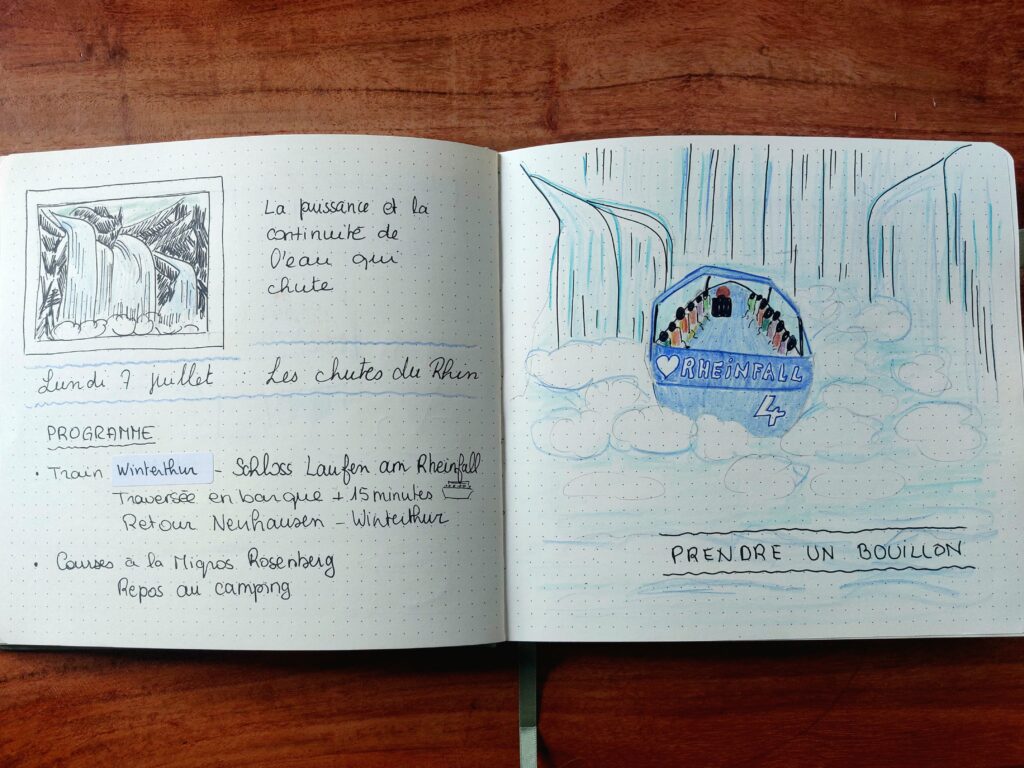 La puissance et la
continuité de
l'eau qui
chute
Lundi 7 juillet : Les chutes du Rhin
PROGRAMME
• Train Winterthur - Schloss Laufen am Rheinfall
Traversée en barque + 15 minutes
Retour Neuhausen - Winterthur
• Courses à la Migros Rosenberg
Repos au camping
RHEINFALL
4
PRENDRE UN BOUILLON